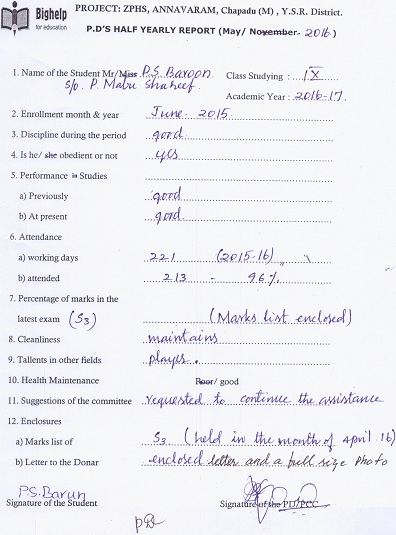 Bighelp
for education
PROJECT: ZPHS, ANNAVARAM, Chapadu (M) , Y.S.R. District.
P.D'S HALF YEARLY REPORT (May/ November- 2016)
1. Name of the Student Mr/Miss P.S. Baroon Class Studying : IX
S/o. P. Mabu Shareef. Academic Year : 2016-17.
2. Enrollment month & year June- 2015
3. Discipline during the period good
4. Is he/ she obedient or not yes
5. Performance in Studies
a) Previously good
b) At present good.
6. Attendance
a) working days 221 (2015-16)
b) attended 213 - 96%
7. Percentage of marks in the
latest exam (S3) (Marks list enclosed)
8. Cleanliness maintains
9. Tallents in other fields player.
10. Health Maintenance Poor/ good
11. Suggestions of the committee requested to continue the assistance
12. Enclosures
a) Marks list of S3 (held in the month of April 16)
b) Letter to the Donar enclosed letter and a full size Photo
P.S. Barun
Signature of the Student Signature of the PD/PCC